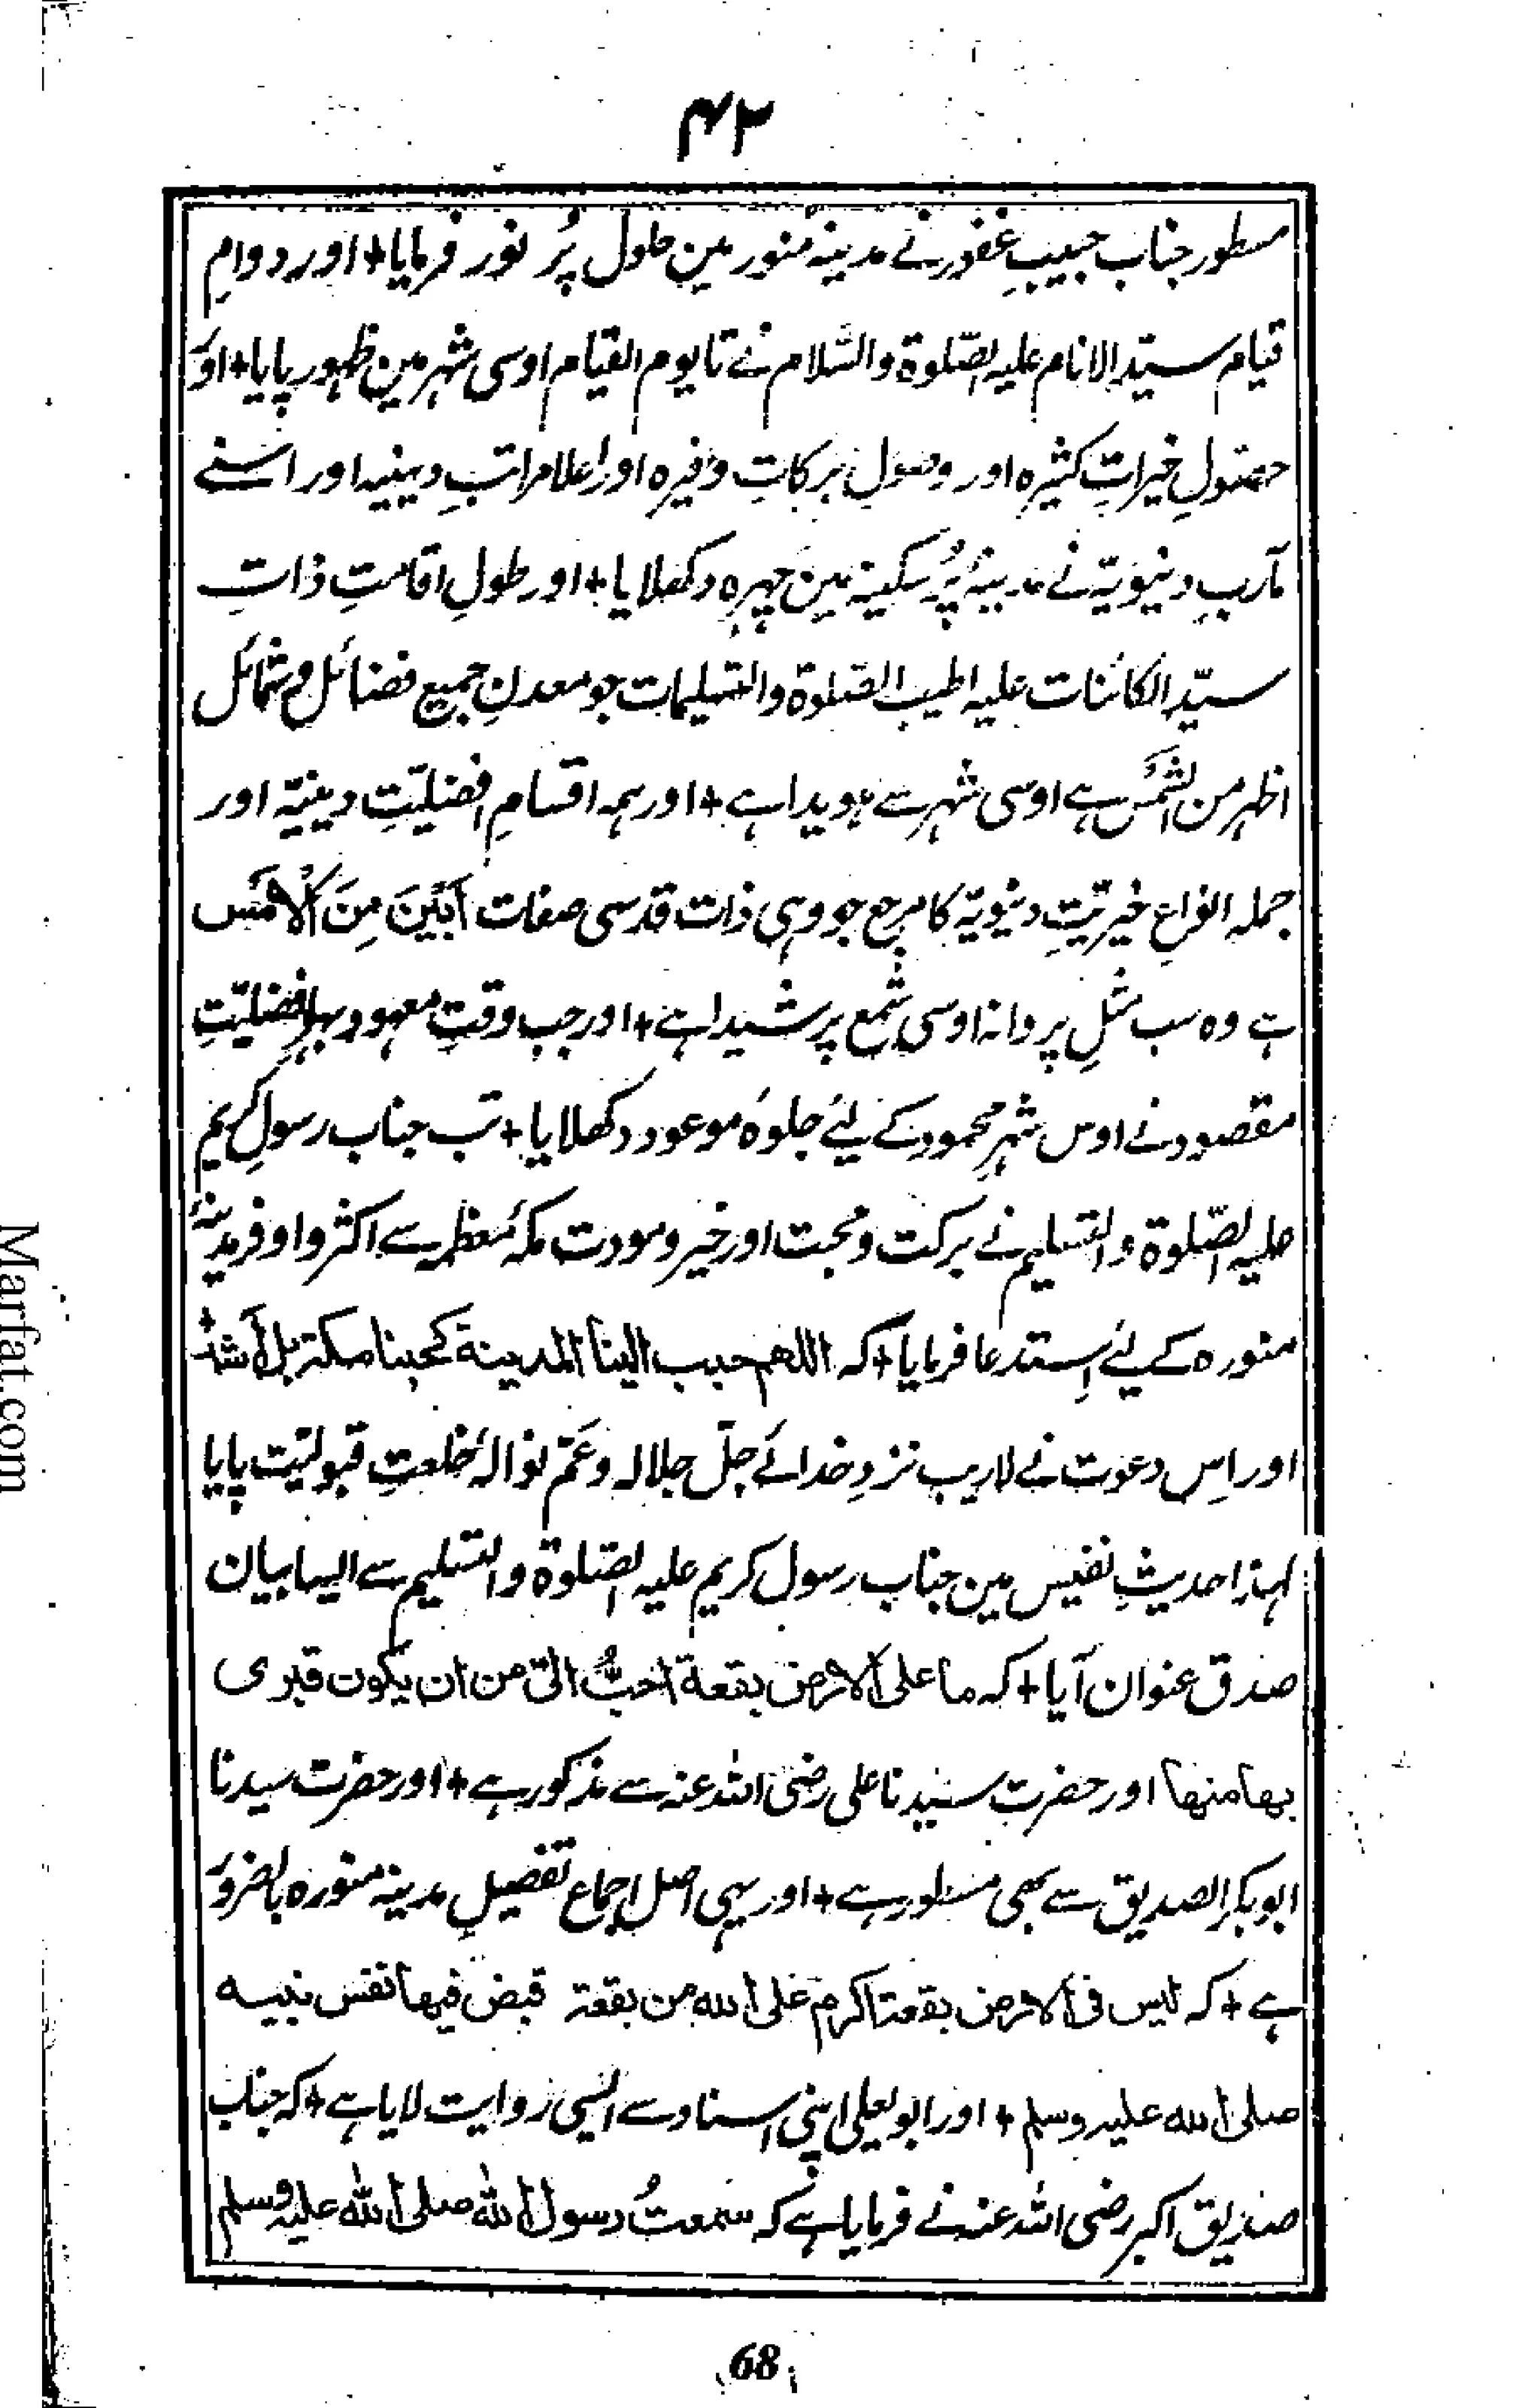 ۴۲
سطور جناب حبیبِ غفور نے مدینہ منور مین حلول پُر نور فرمایا + اور دوامِ
قیام سیّد الانام علیہ الصّلوۃ والسّلام نے تا یوم القیام اوسی شہر مین ظہور پایا + اوَر
حصُولِ خیراتِ کثیرہ اور وصولِ برکاتِ وفیرہ اور اعلا مراتبِ دینیہ اور اسنے
مآربِ دینویّہ نے مدینۂ پُر سکینہ مین چہرہ دکھلایا + اور طولِ اقامتِ ذاتِ
سیّد الکائنات علیہ اطیب الصّلوۃ والتسلیمات جو معدنِ جمیع فضائل و شمائل
اظہر من الشّمس ہے اوسی شہر سے ہویدا ہے + اور ہمہ اقسامِ افضلیّتِ دینیّہ اور
جملہ انواعِ خیریّتِ دینویّہ کا مرجع جو وہی ذات قدسی صفات اَبْیَنَ مِنَ الْاَمْس
ہے وہ سب مثلِ پروانہ اوسی شمع پر شیدا ہے + اور جب وقتِ معہود بہر افضلیّتِ
مقصود نے اوس شہرِ محمود کے لیٔے جلوۂ موعود دکھلایا + تب جناب رسولِ کریم
علیہ الصّلوۃ والتسلیم نے برکت و محبت اور خیر و مودت مکۂ معظمہ سے اکثر و اوفر مدینۂ
منورہ کے لیٔے اِستدعا فرمایا + کہ اللھم حبب الینا المدینۃ کحبنا مکۃ بل اَشدّ +
اور اِس دعوت نے لاریب نزدِ خدائے جلّ جلالہ وعَمّ نوالہ خلعتِ قبولیّت پایا
لہذا حدیثِ نفیس مین جناب رسول کریم علیہ الصّلوۃ والتسلیم سے ایسا بیان
صدق عنوان آیا + کہ ما علی الارض بقعۃ احبُّ الیّ من ان یکون قبری
بھا منھا اور حضرت سیّدنا علی رضی اللہ عنہ سے مذکور ہے + اور حضرت سیدنا
ابوبکر الصدیق سے بھی مسطور ہے + اور یہی اصل اِجماع تفضیلِ مدینہ منورہ بالضرور
ہے + کہ لیس فی الارض بقعۃ اکرم علی اللہ من بقعۃ قبض فیھا نفس نبیہ
صلی اللہ علیہ وسلم + اور ابو یعلی اپنی اسناد سے ایسی روایت لایا ہے + کہ جناب
صدیق اکبر رضی اللہ عنہ نے فرمایا ہے کہ سمعتُ رسول اللہ صلی اللہ علیہ وسلم
68
Marfat.com